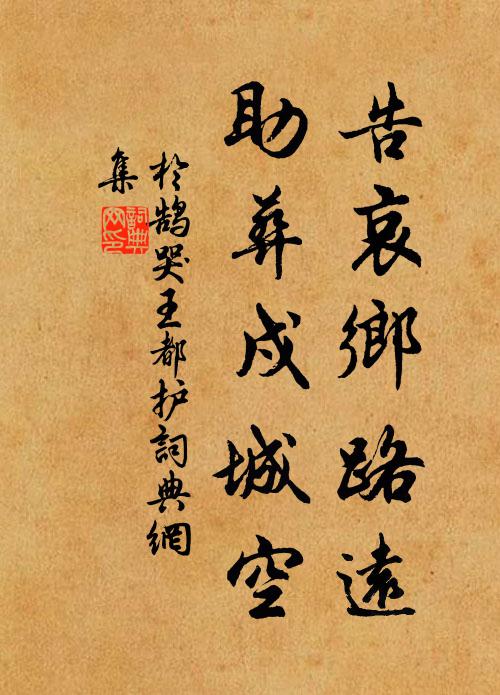 告哀鄉路遠
助葬戍城空
於鹄哭王都护詞典網
集
詞典
网印